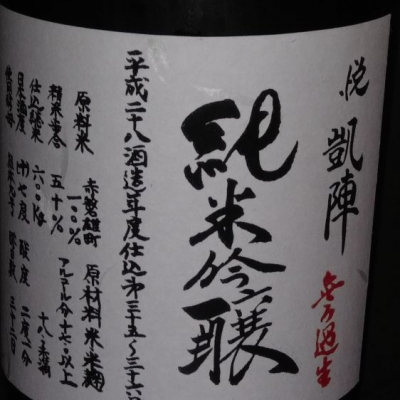 悦 凱陣 無ろ過生
純米吟醸
平成二十八酒造年度仕込第三十五〜三十六号
原料米 赤磐雄町 一〇〇% 原材料 米 米麹
精米歩合 五十% アルコール分 十七%以上 十八%未満
仕込総米 六〇〇kg
日本酒度 (+)七度 酸度 二度一分
使用酵母